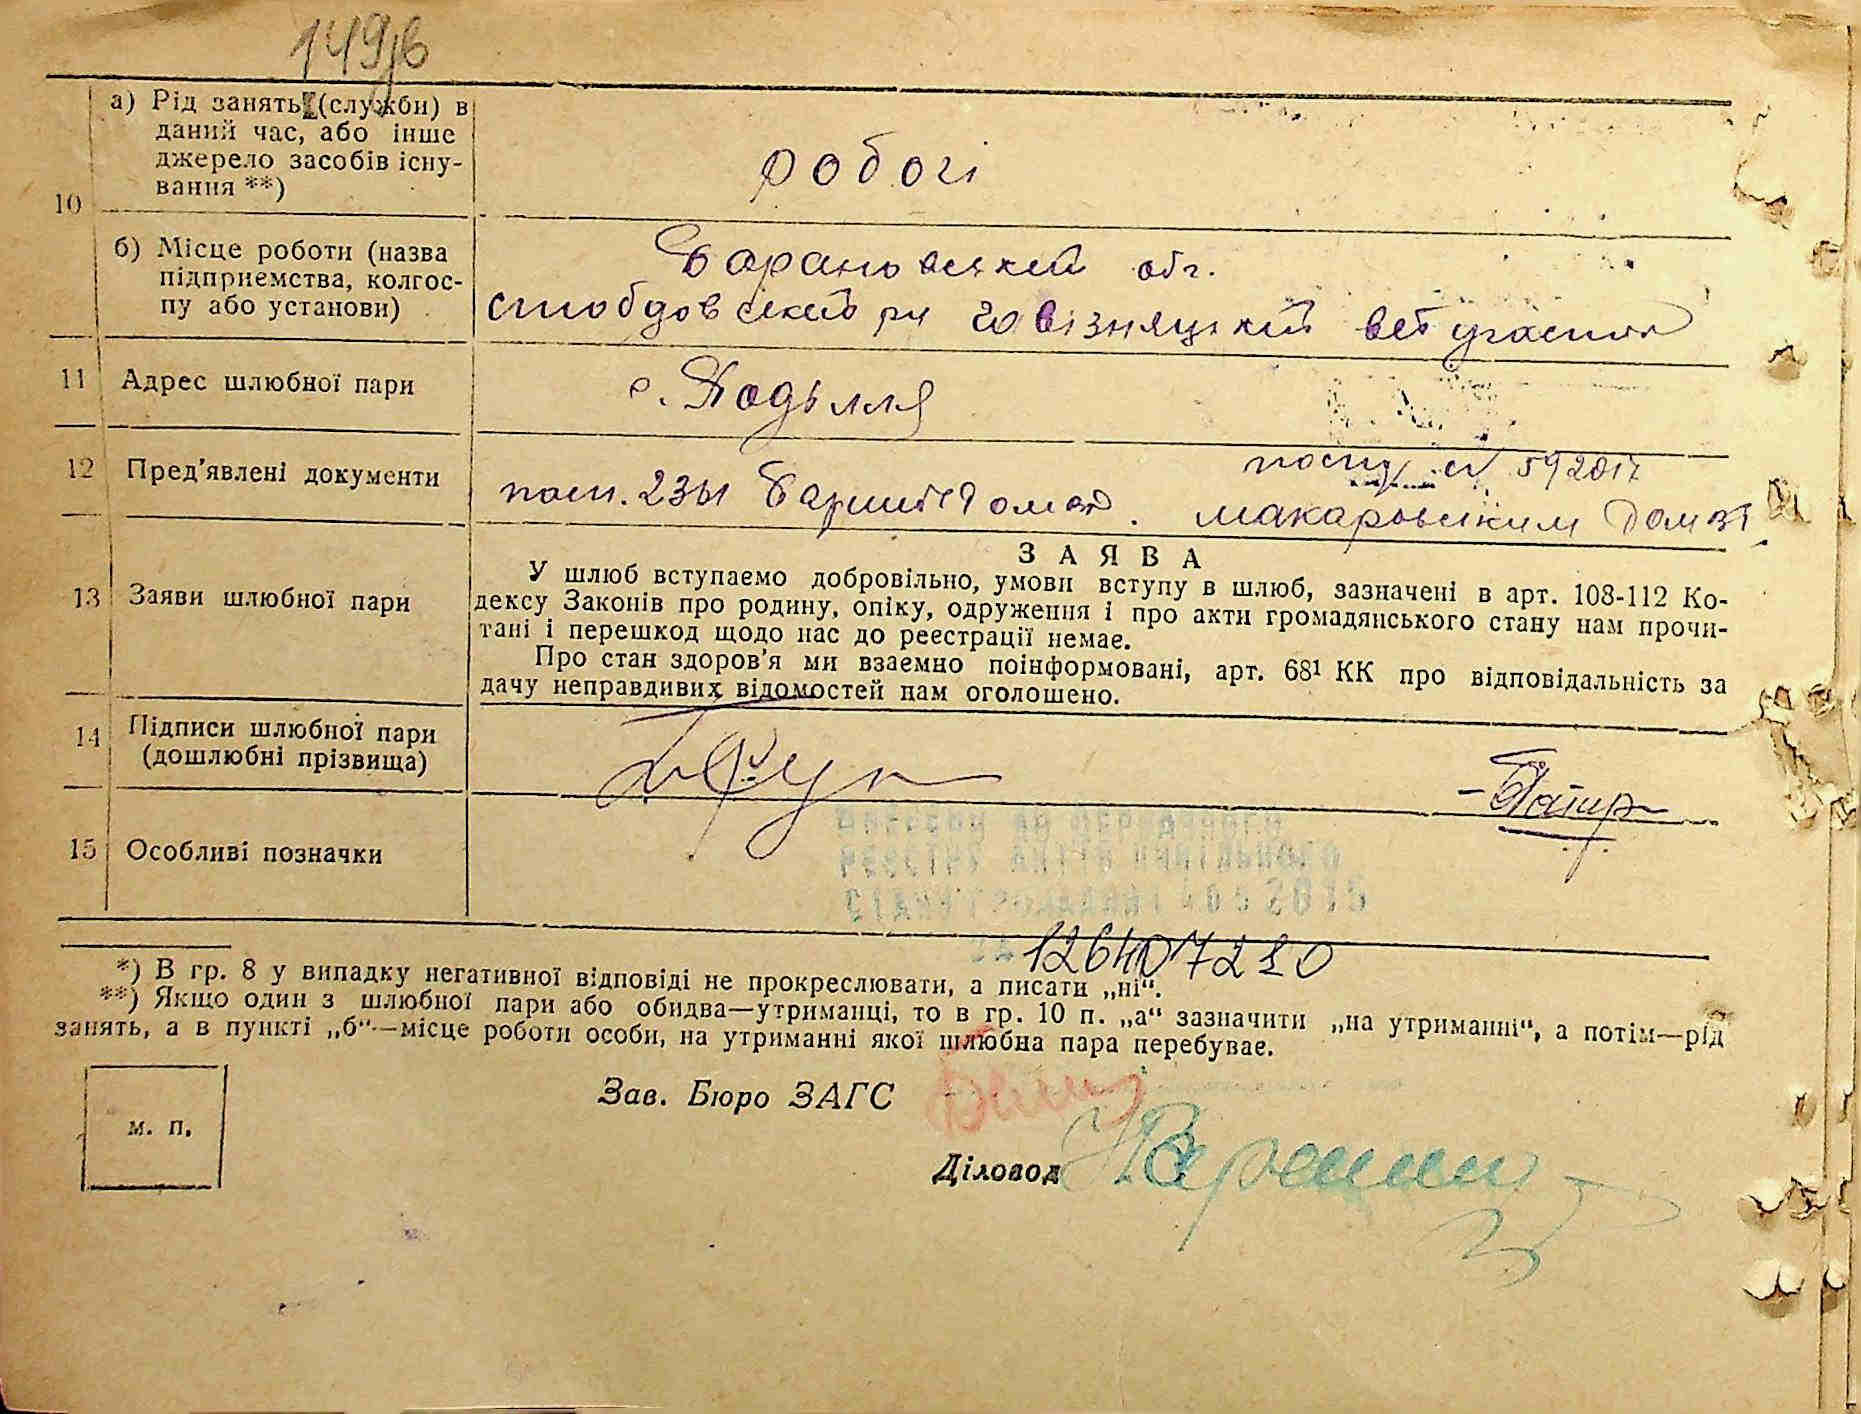 149/в
10
а) Рід занять (служби) в
даний час, або інше
джерело засобів існу-
вання **)
робочі
б) Місце роботи (назва
підприємства, колгос-
пу або установи)
обл.
11
Адрес шлюбної пари
с. Подылля
12
Пред'явлені документи
пасп. № 592017
пасп. 231
макаровским
13
Заяви шлюбної пари
ЗАЯВА
У шлюб вступаємо добровільно, умови вступу в шлюб, зазначені в арт. 108-112 Ко-
дексу Законів про родину, опіку, одруження і про акти громадянського стану нам прочи-
тані і перешкод щодо нас до реєстрації немає.
Про стан здоров'я ми взаємно поінформовані, арт. 68¹ КК про відповідальність за
дачу неправдивих відомостей нам оголошено.
14
Підписи шлюбної пари
(дошлюбні прізвища)
15
Особливі позначки
ВНЕСЕНО ДО ДЕРЖАВНОГО
РЕЄСТРУ АКТІВ ЦИВІЛЬНОГО
СТАНУ ГРОМАДЯН 2015
*) В гр. 8 у випадку негативної відповіді не прокреслювати, а писати „ні“.
**) Якщо один з шлюбної пари або обидва—утриманці, то в гр. 10 п. „а“ зазначити „на утриманні“, а потім—рід
занять, а в пункті „б“—місце роботи особи, на утриманні якої шлюбна пара перебуває.
Зав. Бюро ЗАГС
м. п.
Діловод